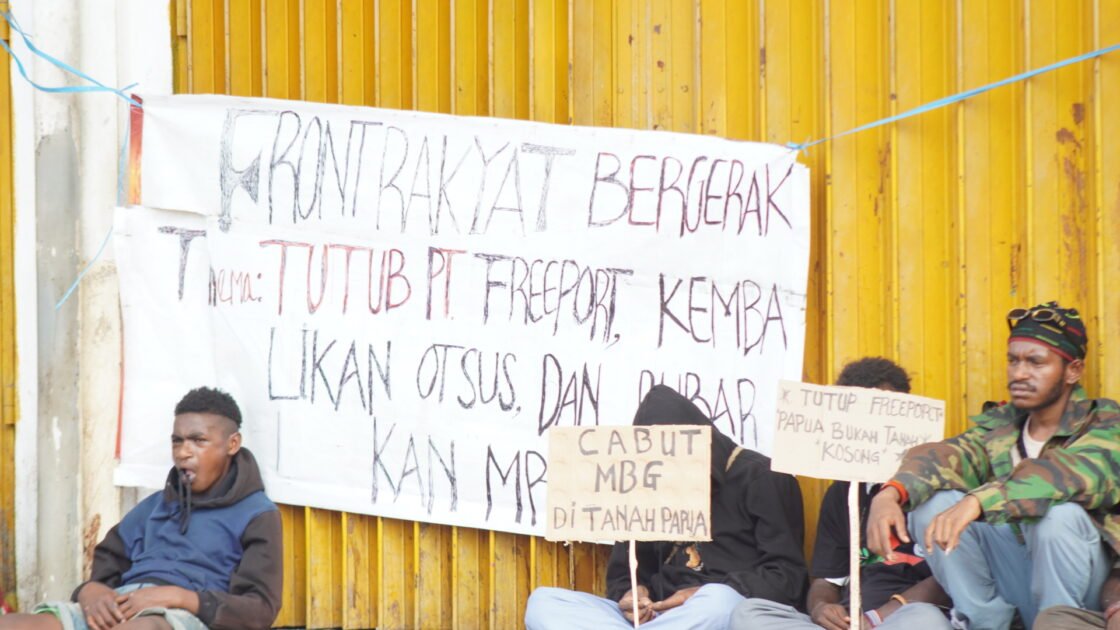 FRONT RAKYAT BERGERAK
Thema: TUTUB PT. FREEPORT, KEMBA
LIKAN OTSUS. DAN BUBAR
KAN
CABUT
MBG
Di TANAH PAPUA
* TUTUP FREEPORT
"PAPUA BUKAN TANAH
"KOSONG" *